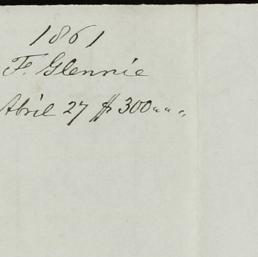 1861
F. Glennie
April 27 $ 300 " " .